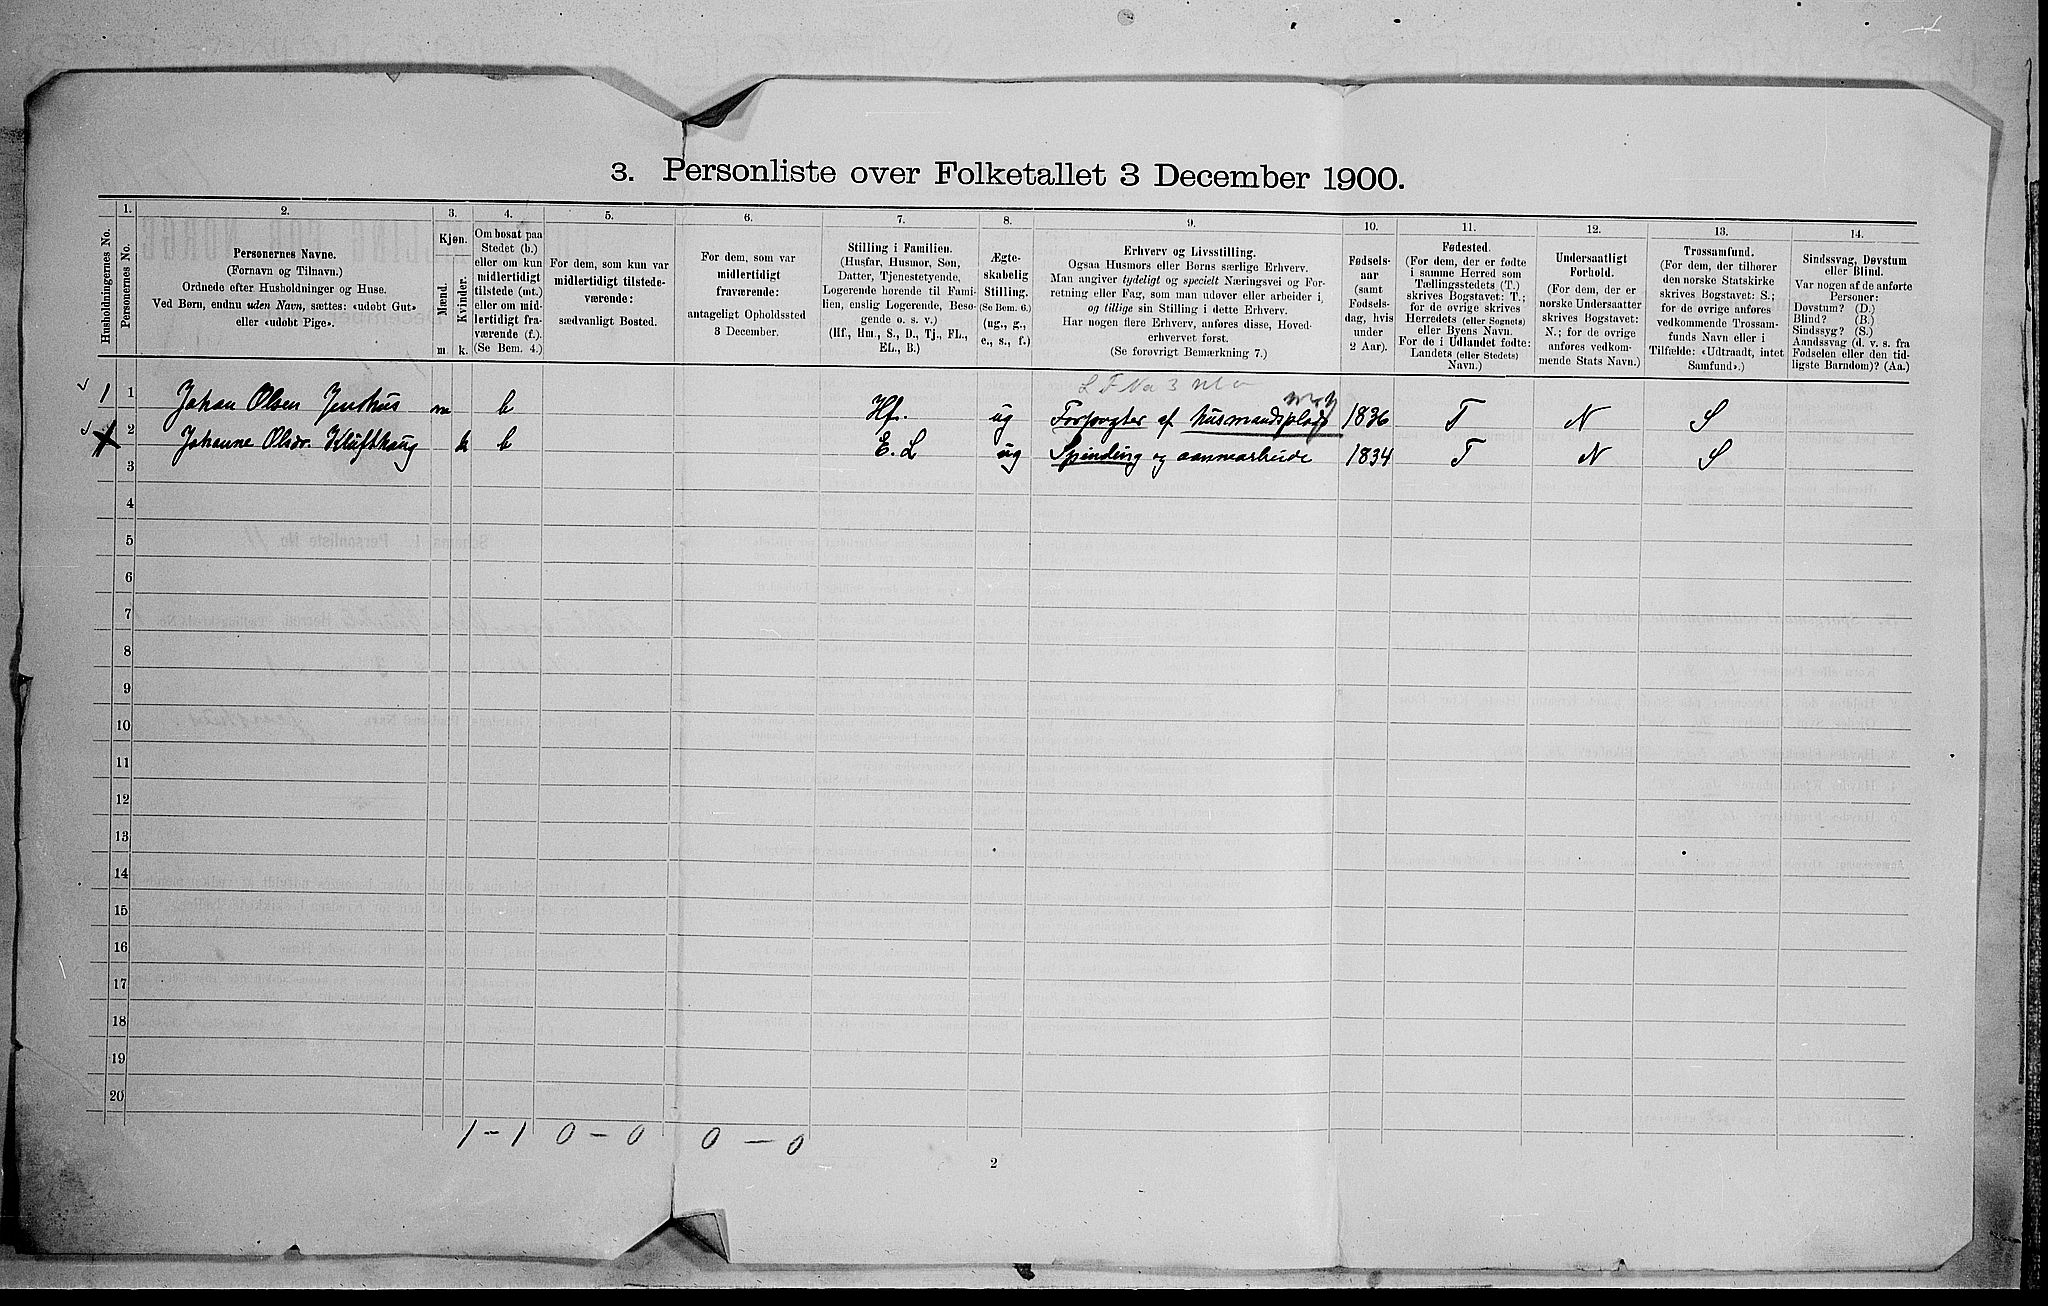 3. Personliste over Folketallet 3 December 1900.
1. 2. 3. 4. 5. 6. 7. 8. 9. 10. 11. 12. 13. 14.
Husholdningernes No.
Personernes No.
Personernes Navne.
(Fornavn og Tilnavn.)
Ordnede efter Husholdninger og Huse.
Ved Børn, endnu uden Navn, sættes: «udobt Gut»
eller «udobt Pige».
Kjøn.
Mænd.
Kvinder.
m k.
Om bosat paa
Stedet (b.)
eller om kun
midlertidigt
tilstede (mt.)
eller om mid-
lertidigt fra-
værende (f.).
(Se Bem. 4.)
For dem, som kun var
midlertidigt tilstede-
værende:
sædvanligt Bosted.
For dem, som var
midlertidigt
fraværende:
antageligt Opholdssted
3 December.
Stilling i Familien.
(Husfar, Husmor, Søn,
Datter, Tjenestetyende,
Logerende hørende til Fami-
lien, enslig Logerende, Besø-
gende o. s. v.)
(Hf., Hm., S., D., Tj., FL.,
EL., B.)
Ægte-
skabelig
Stilling.
(Se Bem. 6.)
(ug., g.,
e., s., f.)
Erhverv og Livsstilling.
Ogsaa Husmors eller Børns særlige Erhverv.
Man angiver tydeligt og specielt Næringsvei og For-
retning eller Fag, som man udover eller arbeider i,
og tillige sin Stilling i dette Erhverv.
Har nogen flere Erhverv, anføres disse, Hoved-
erhvervet først.
(Se forøvrigt Bemærkning 7.)
Fødsels-
aar
(samt
Fødsels-
dag, hvis
under
2 Aar).
Fødested.
(For dem, der er fødte
i samme Herred som
Tællingsstedets (T.)
skrives Bogstavet: T.;
for de øvrige skrives
Herredets (eller Sognets)
eller Byens Navn.
For de i Udlandet fødte:
Landets (eller Stedets)
Navn.)
Undersaatligt
Forhold.
(For dem, der er
norske Undersaatter
skrives Bogstavet:
N.; for de øvrige
anføres vedkom-
mende Stats Navn.)
Trossamfund.
(For dem, der tilhører
den norske Statskirke
skrives Bogstavet: S.;
for de øvrige anføres
vedkommende Trossam-
funds Navn eller i
Tilfælde: «Udtraadt, intet
Samfund».)
Sindssvag, Døvstum
eller Blind.
Var nogen af de anførte
Personer:
Døvstum? (D.)
Blind? (B.)
Sindssyg? (S.)
Aandssvag (d. v. s. fra
Fødselen eller den tid-
ligste Barndom)? (Aa.)
1 1 Johan Olsen Jenshus m b Hf. ug Forpagter af husmandsplads 1836 T N S
2 Johanne Olsdr. Klufthaug k b E. L ug Spinding og aannearbeide 1834 T N S
3
4
5
6
7
8
9
10
11
12
13
14
15
16
17
18
19
20
1 - 1 0 - 0 0 - 0
2